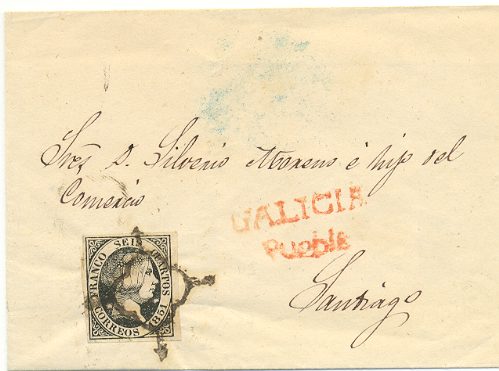 Sres D. Silverio Moreno é hijo del
Comercio
GALICIA
Puebla
FRANCO SEIS CUARTOS
CORREOS 1851
Santiago